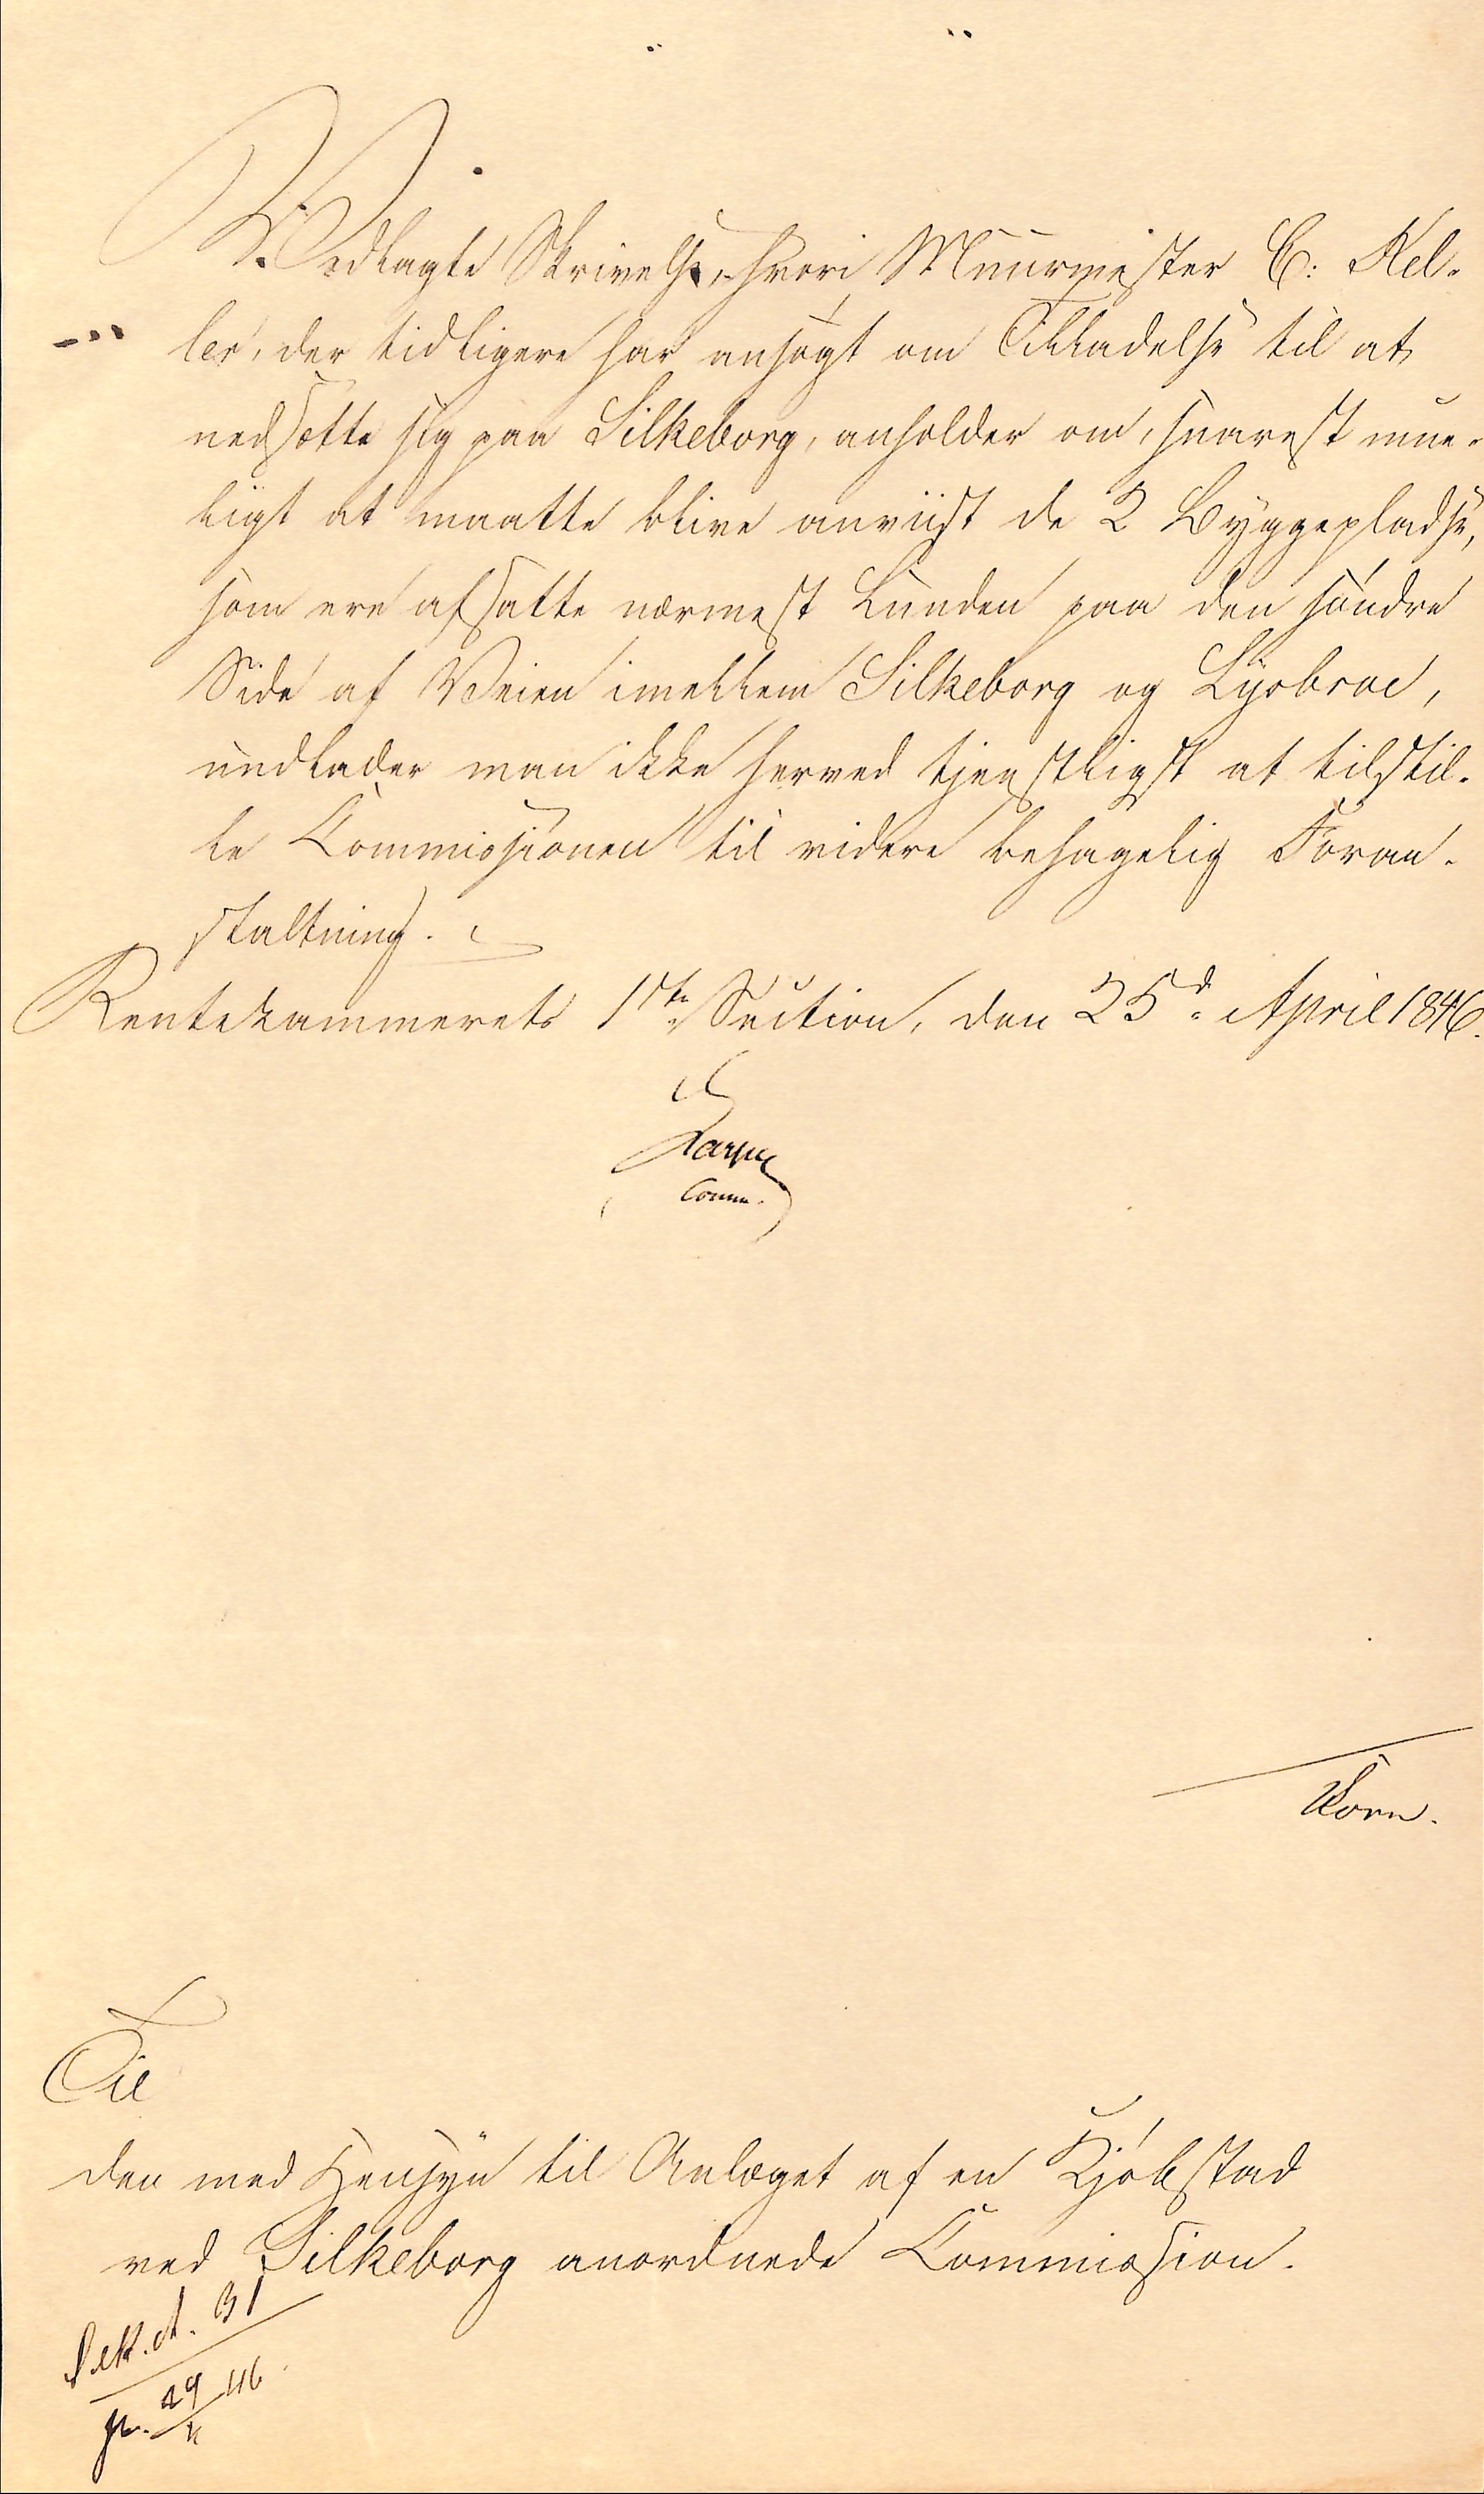 Vedlagte Skrivelse, hvori Muurmester C: Kel-
ler, der tidligere har ansøgt om Tilladelse til at
nedsætte sig paa Silkeborg, anholder om, snarest mue-
ligt at maatte blive anviist de 2 Byggepladse,
som ere afsatte nærmest Lunden paa den søndre
Side af Veien imellem Silkeborg og Lysbroe,
undlader man ikke herved tjenstligst at tilstil-
le Commissionen til videre behagelig Foran-
staltning.
Rentekammerets 1ste Section, den 25d. April 1846.
Comm.
Korn.
Til
den med Hensyn til Anlæget af en Kjøbstad
ved Silkeborg anordnede Commission.
31
29/4 46